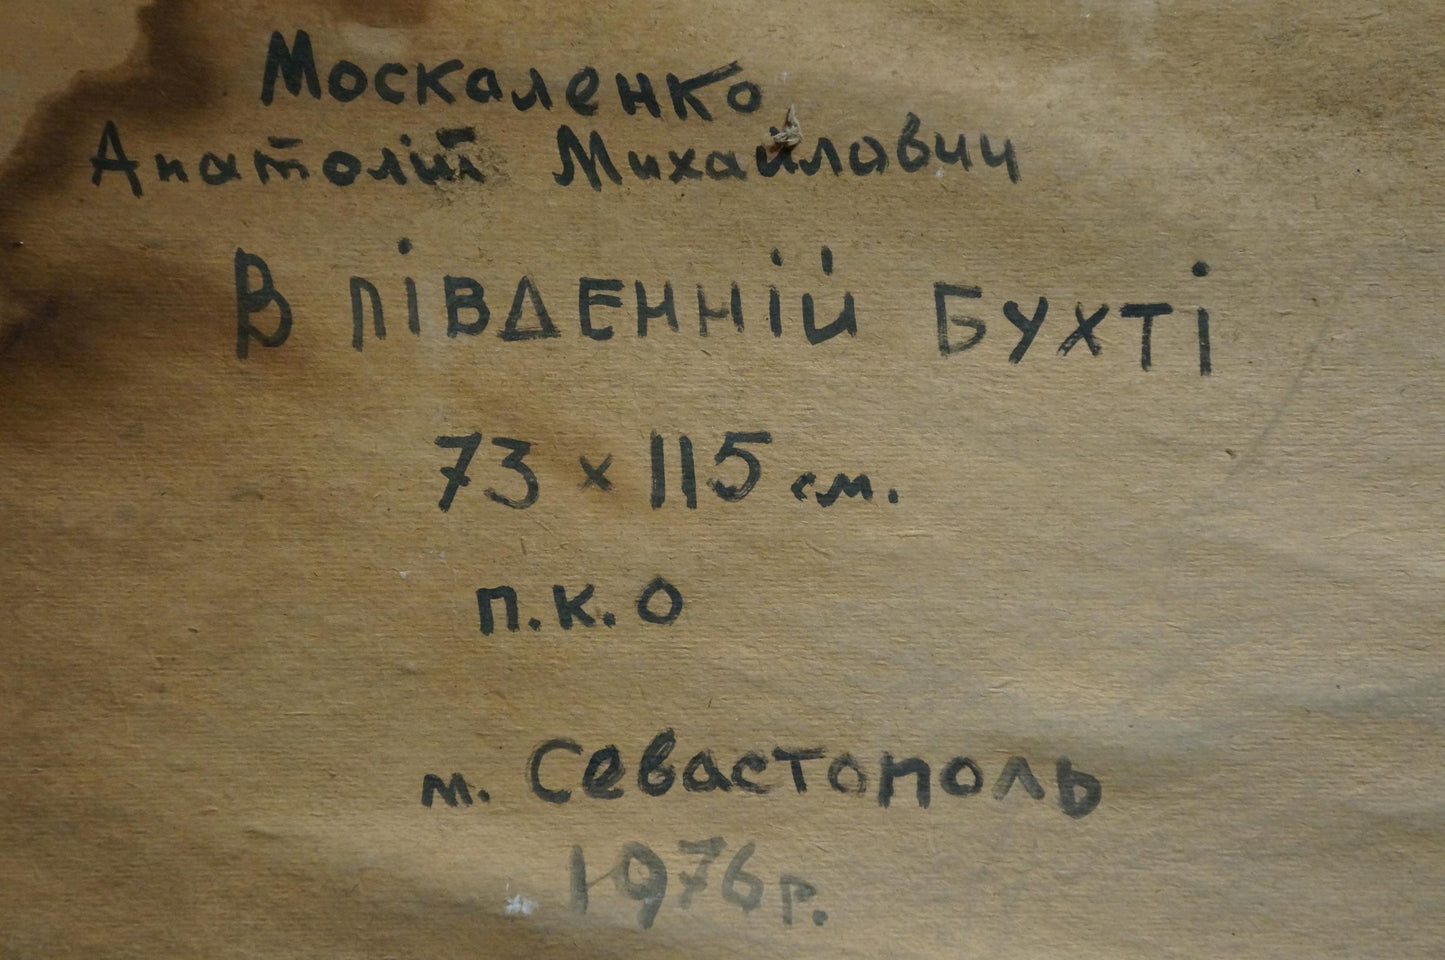 Москаленко
Анатолій Михайлович
В ПІВДЕННІЙ БУХТІ
73 x 115 см.
п.к.о
м. Севастополь
1976 р.